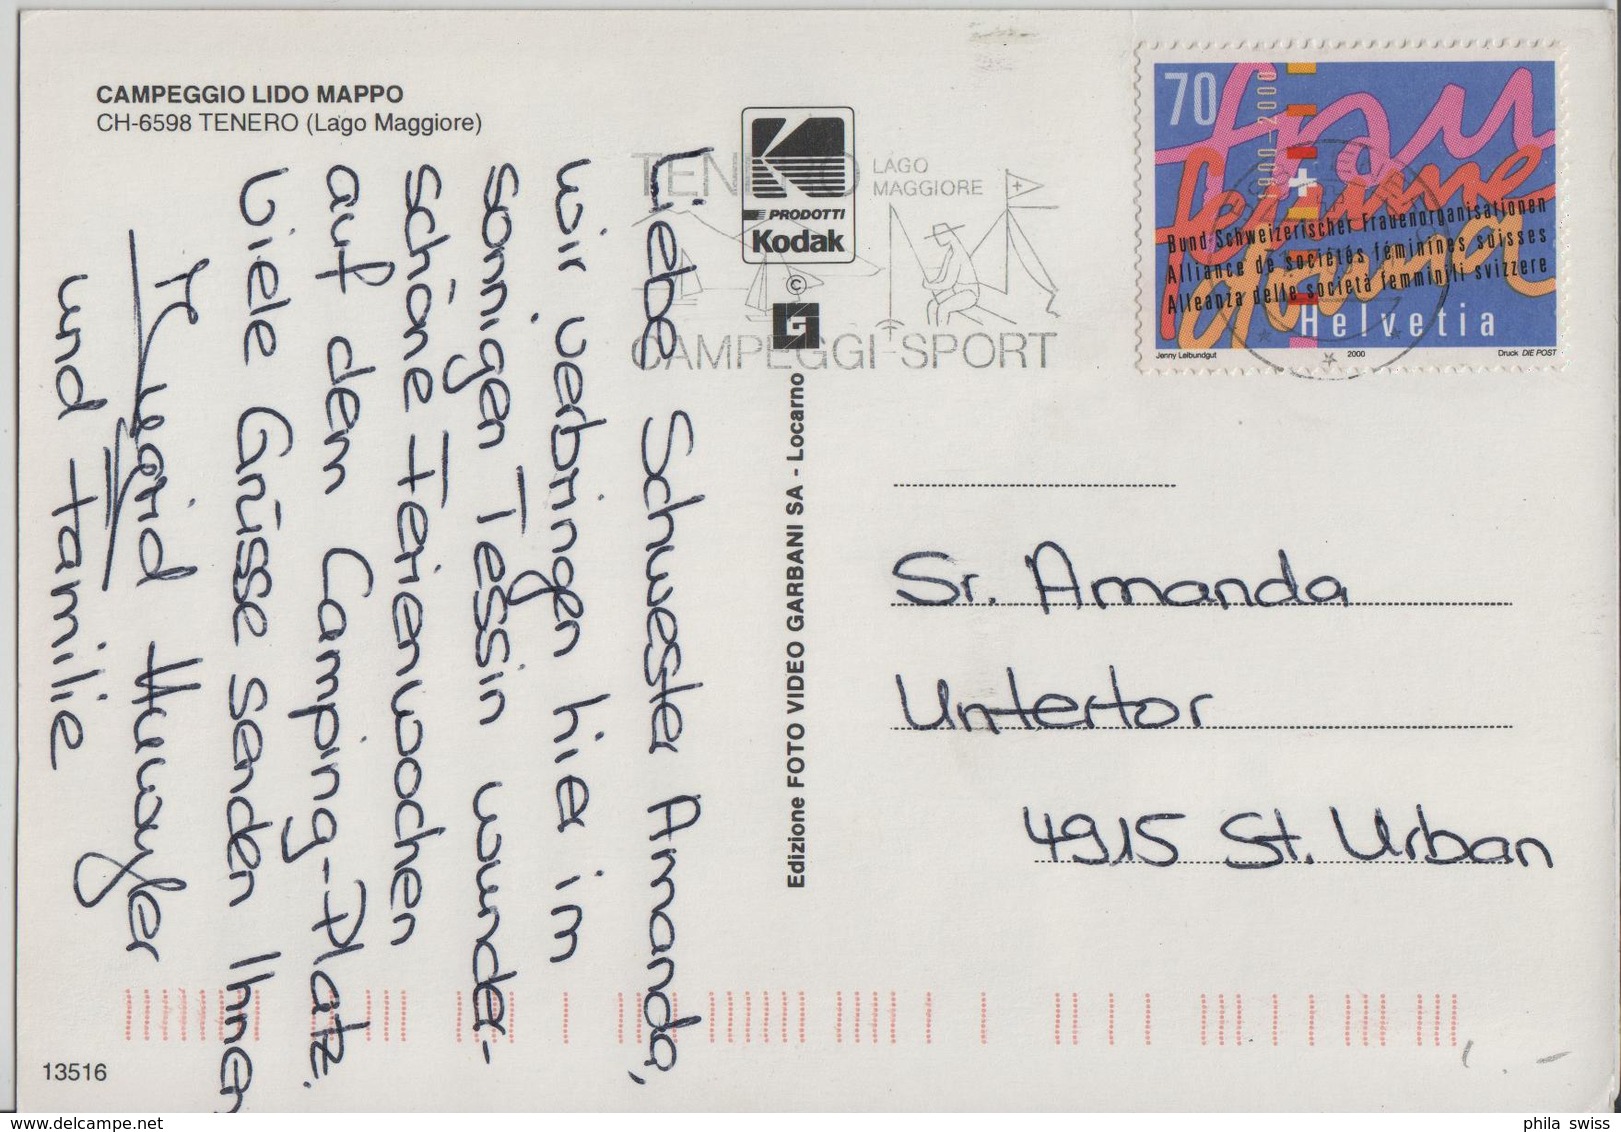 CAMPEGGIO LIDO MAPPO
CH-6598 TENERO (Lago Maggiore)
Liebe Schwester Amanda,
wir verbringen hier im
sonnigen Tessin wunder-
schöne Ferienwochen
auf dem Camping-Platz.
Viele Grüsse senden Ihnen
und Familie
13516
PRODOTTI
Kodak
©
Edizione FOTO VIDEO GARBANI SA - Locarno
TENERO LAGO
MAGGIORE
CAMPEGGI-SPORT
70
1900-2000
frau
femme
donne
Bund Schweizerischer Frauenorganisationen
Alliance de sociétés féminines suisses
Alleanza delle società femminili svizzere
Helvetia
Jenny Leibundgut 2000 Druck DIE POST
Sr. Amanda
Untertor
4915 St. Urban
phila swiss